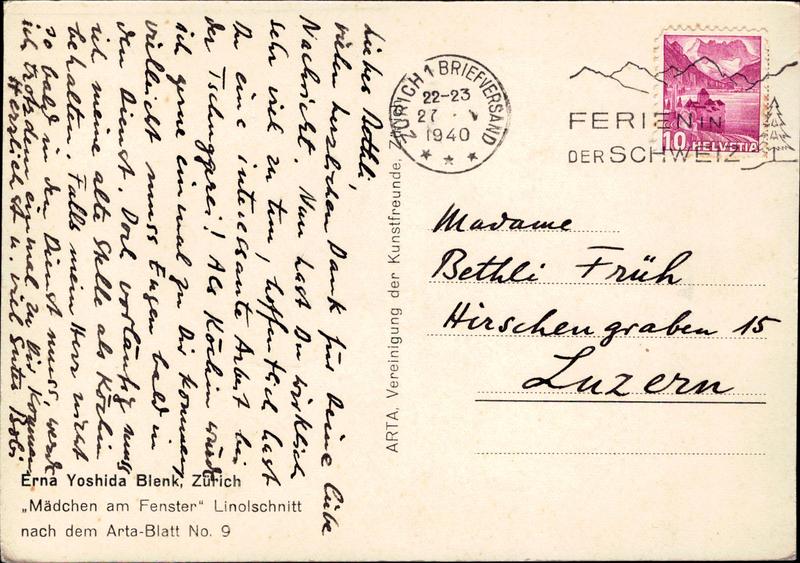 Liebes Bethli,
vielen herzlichen Dank für Deine liebe
Nachricht. Nun hast Du wirklich
sehr viel zu tun, hoffentlich hast
Du eine interessante Arbeit bei
der Tschuggrei! Als Köchin würde
ich gerne einmal zu Dir kommen,
vielleicht muss Eugen bald in
den Dienst. Doch vorläufig muss
ich meine alte Stelle als Köchin
behalten. Falls mein Herr nicht
so bald in den Dienst muss, werde
ich trotzdem einmal zu Dir kommen
Herzlichst u. viel Gutes
Erna Yoshida Blenk, Zürich
„Mädchen am Fenster“ Linolschnitt
nach dem Arta-Blatt No. 9
ARTA, Vereinigung der Kunstfreunde,
ZÜRICH 1 BRIEFVERSAND
22-23
27
1940
FERIEN IN
DER SCHWEIZ
10 HELVETIA
Madame
Bethli Früh
Hirschengraben 15
Luzern